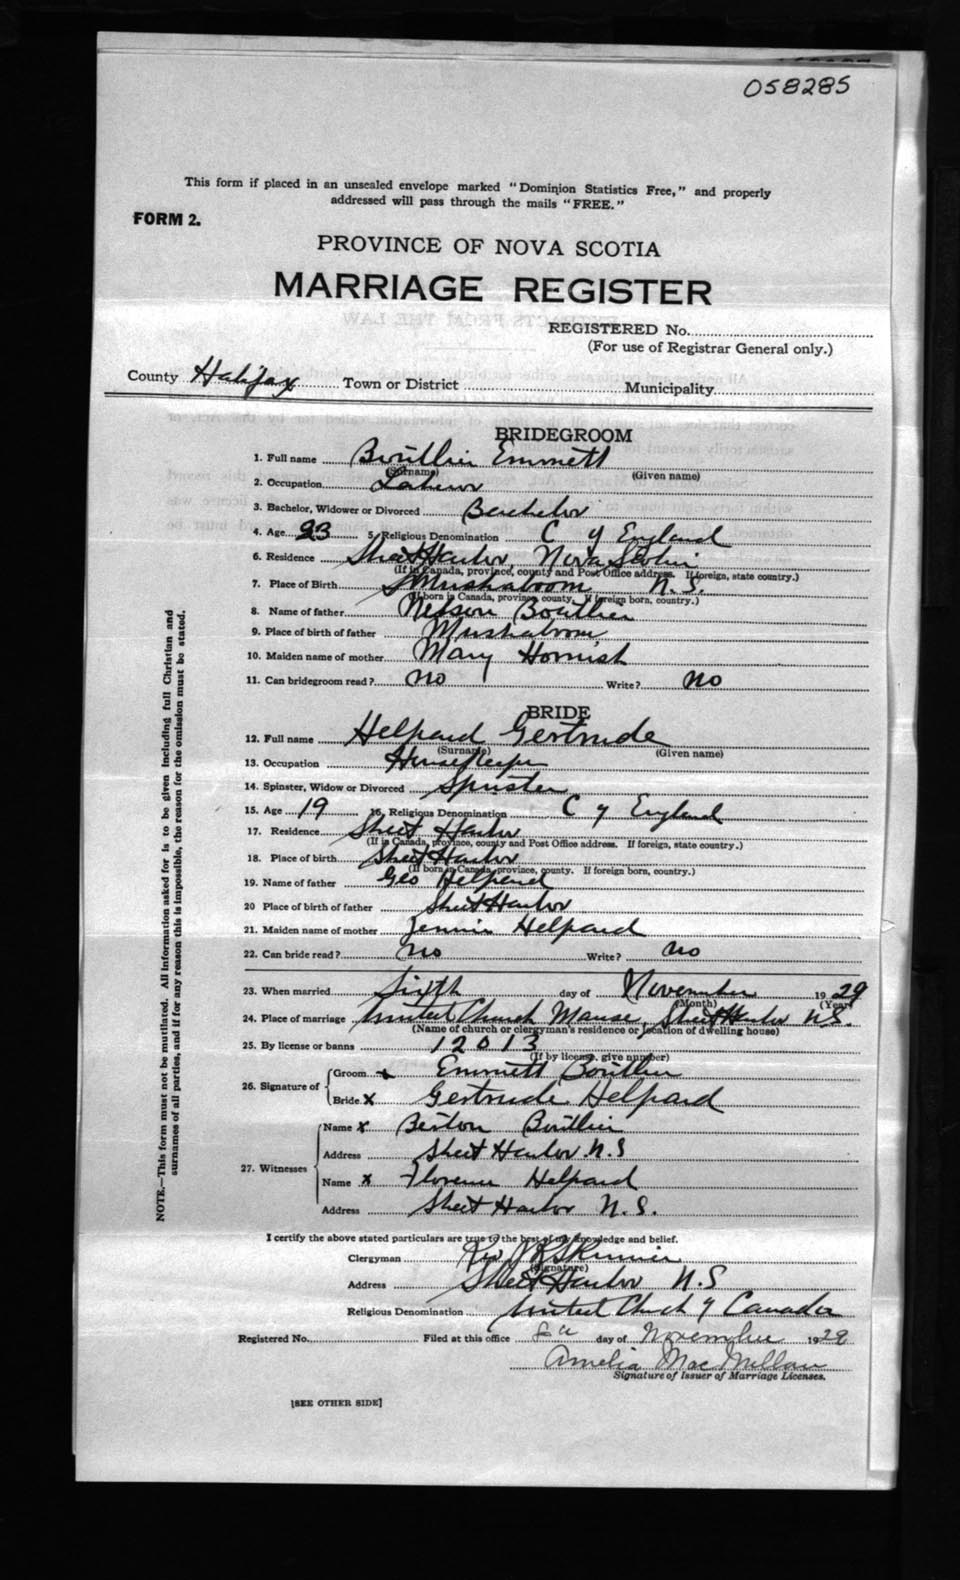 058285
This form if placed in an unsealed envelope marked "Dominion Statistics Free," and properly
addressed will pass through the mails "FREE."
FORM 2.
PROVINCE OF NOVA SCOTIA
MARRIAGE REGISTER
REGISTERED No.
(For use of Registrar General only.)
County Halifax Town or District Municipality
BRIDEGROOM
1. Full name Boutlier Emmett
(Surname) (Given name)
2. Occupation Laborer
3. Bachelor, Widower or Divorced Bachelor
4. Age 23 5. Religious Denomination C of England
6. Residence Sheet Harbor, Nova Scotia
(If in Canada, province, county and Post Office address. If foreign, state country.)
7. Place of Birth Mushaboom N.S.
(If born in Canada, province, county. If foreign born, country.)
8. Name of father Nelson Boutlier
9. Place of birth of father Mushaboom
10. Maiden name of mother Mary Hornish
11. Can bridegroom read? no Write? no
BRIDE
12. Full name Helpard Gertrude
(Surname) (Given name)
13. Occupation Housekeeper
14. Spinster, Widow or Divorced Spinster
15. Age 19 16. Religious Denomination C of England
17. Residence Sheet Harbor
(If in Canada, province, county and Post Office address. If foreign, state country.)
18. Place of birth Sheet Harbor
(If born in Canada, province, county. If foreign born, country.)
19. Name of father Geo Helpard
20 Place of birth of father Sheet Harbor
21. Maiden name of mother Jennie Helpard
22. Can bride read? no Write? no
23. When married Sixth day of November 1929
(Month) (Year)
24. Place of marriage United Church Manse, Sheet Harbor N.S.
(Name of church or clergyman's residence or location of dwelling house)
25. By license or banns 12013
(If by license, give number)
26. Signature of Groom x Emmett Boutlier
Bride x Gertrude Helpard
27. Witnesses Name x Boutlier
Address Sheet Harbor N.S
Name x Florence Helpard
Address Sheet Harbor N.S.
I certify the above stated particulars are true to the best of my knowledge and belief.
Clergyman Rev Skinner
(Signature)
Address Sheet Harbor N.S
Religious Denomination United Church of Canada
Registered No. Filed at this office day of November 1929
Amelia MacMillan
Signature of Issuer of Marriage Licenses.
[SEE OTHER SIDE]
NOTE.—This form must not be mutilated. All information asked for is to be given including full Christian and
surnames of all parties, and if for any reason this is impossible, the reason for the omission must be stated.